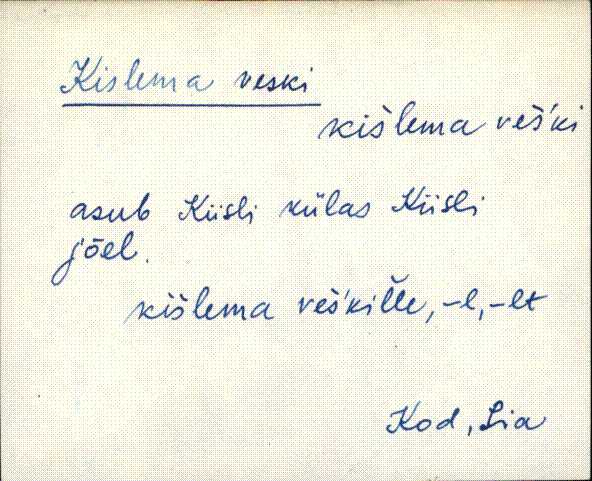 Kislema veski
kišlema veš'ki
asub Kiisli külas Kiisli
jõel.
kišlema veš'kille, -l, -lt
Kod, Lia